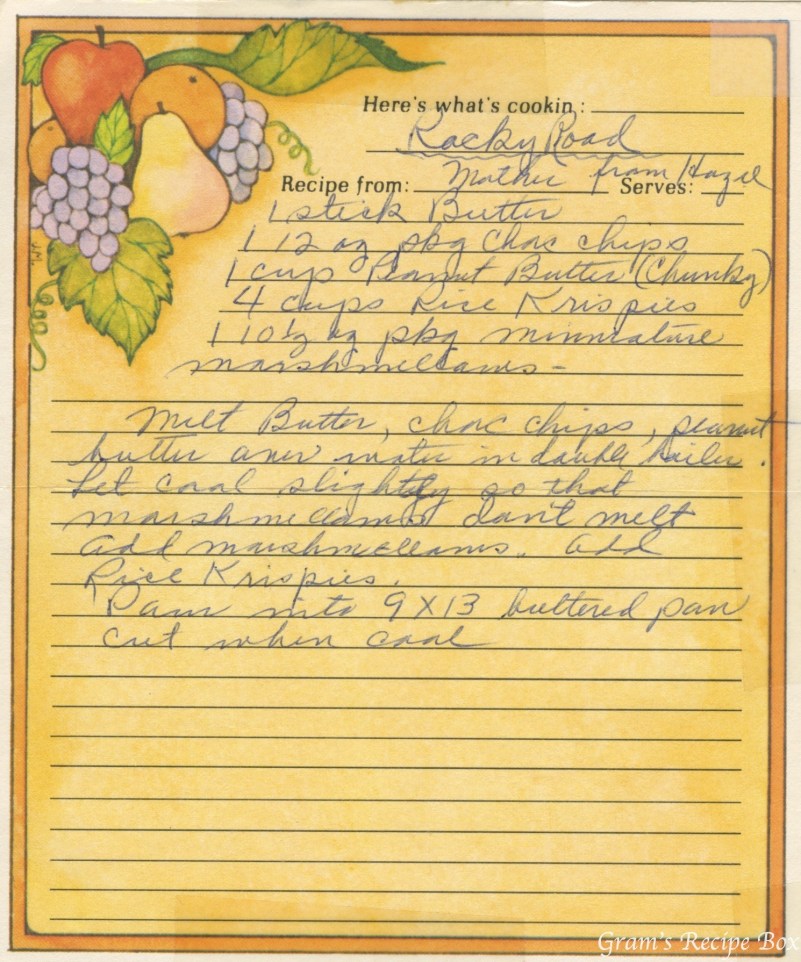 Here's what's cookin:
Rocky Road
Recipe from: Mother from Hazel Serves:
1 stick Butter
1 12 oz pkg Choc chips
1 cup Peanut Butter (Chunky)
4 cups Rice Krispies
1 10½ oz pkg minniature
marshmellows -
Melt Butter, choc chips, peanut
butter over water in double boiler.
Let cool slightly so that
marshmellows don't melt
add marshmellows. add
Rice Krispies.
Pour into 9X13 buttered pan
cut when cool
Gram's Recipe Box